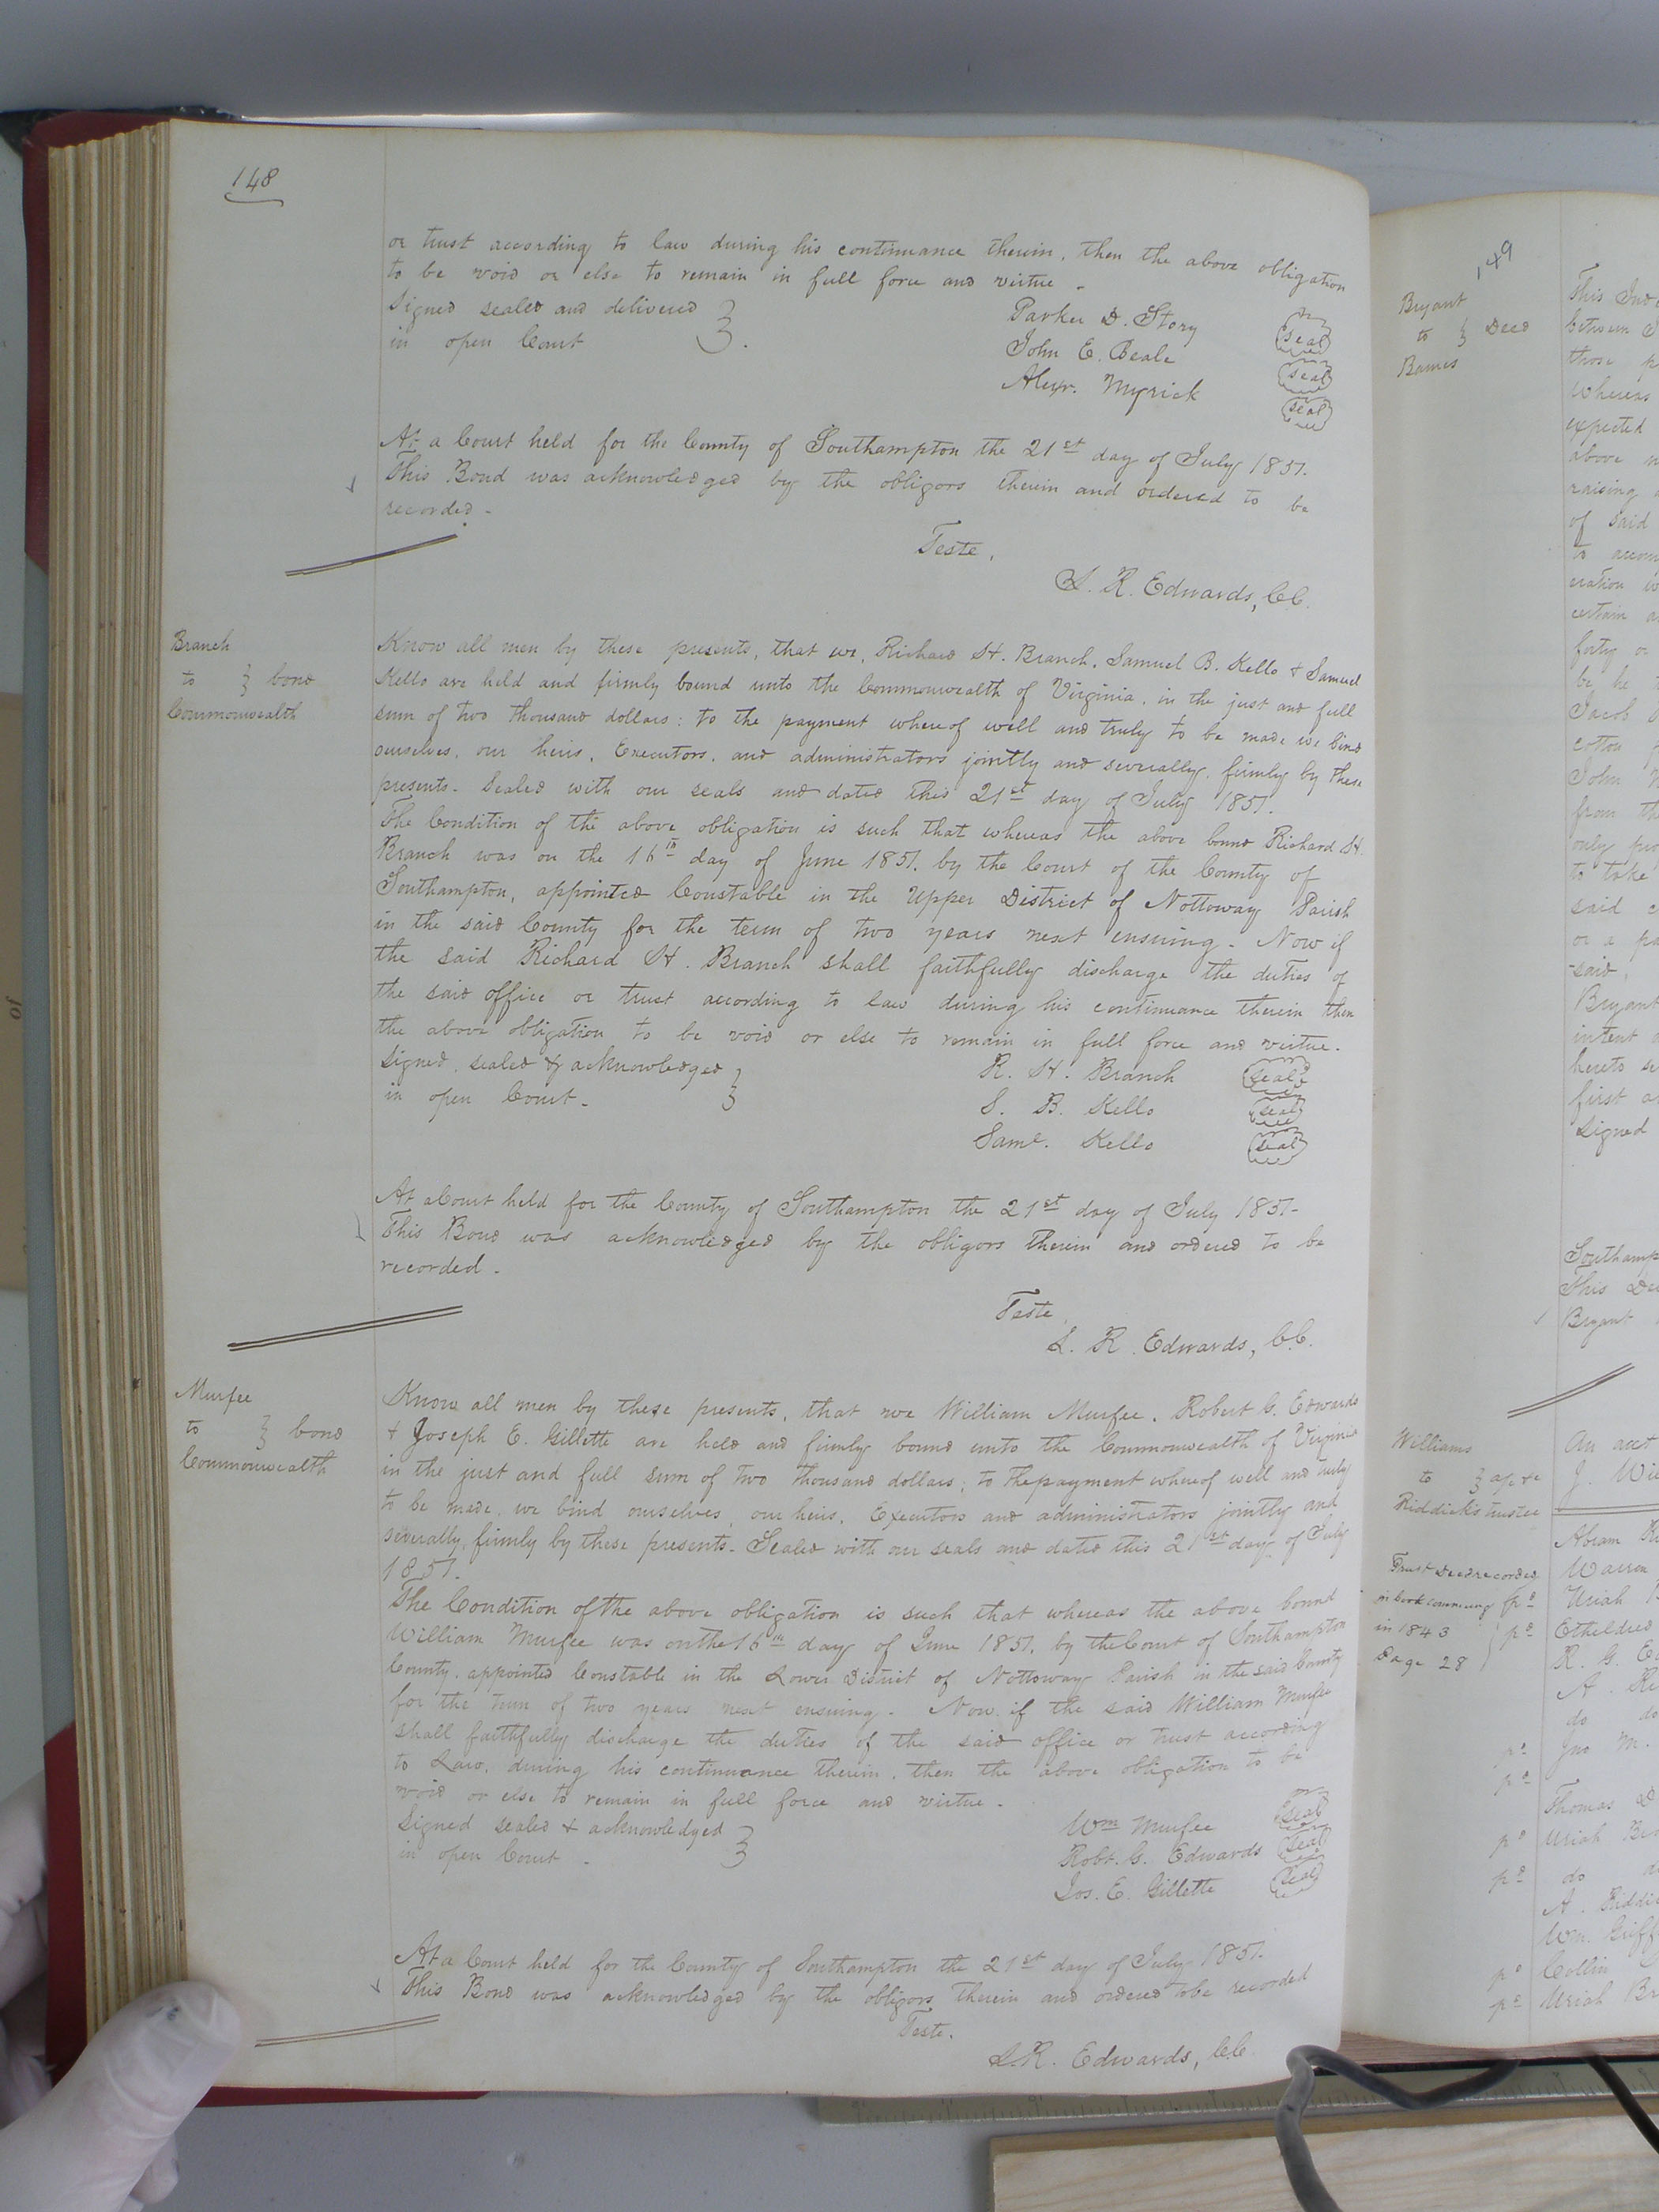 148
or trust according to law during his continuance therein, then the above obligation
to be void or else to remain in full force and virtue -
Signed sealed and delivered
in open Court
Parker D. Story seal
John E. Beale seal
Alexr. Myrick seal
At a Court held for the County of Southampton the 21st day of July 1851.
This Bond was acknowledged by the obligors therein and ordered to be
recorded -
Teste,
L. R. Edwards, CC.
Branch
to } bond
Commonwealth
Know all men by these presents, that we, Richard H. Branch, Samuel B. Kello & Samuel
Kello are held and firmly bound unto the Commonwealth of Virginia, in the just and full
sum of two thousand dollars: to the payment whereof well and truly to be made we bind
ourselves, our heirs, Executors, and administrators jointly and severally, firmly by these
presents. Sealed with our seals and dated this 21st day of July 1851.
The Condition of the above obligation is such that whereas the above bound Richard H.
Branch was on the 16th day of June 1851, by the Court of the County of
Southampton, appointed Constable in the Upper District of Nottoway Parish
in the said County for the term of two years next ensuing - Now if
the said Richard H. Branch shall faithfully discharge the duties of
the said office or trust according to law during his continuance therein then
the above obligation to be void or else to remain in full force and virtue.
Signed, sealed & acknowledged
in open Court -
R. H. Branch seal
S. B. Kello seal
Saml. Kello seal
At a Court held for the County of Southampton the 21st day of July 1851-
This Bond was acknowledged by the obligors therein and ordered to be
recorded -
Teste,
L. R. Edwards, C.C.
Murfee
to } bond
Commonwealth
Know all men by these presents, that we William Murfee, Robert G. Edwards
& Joseph E. Gillette are held and firmly bound unto the Commonwealth of Virginia
in the just and full sum of two thousand dollars; to the payment whereof well and truly
to be made, we bind ourselves, our heirs, Executors and administrators jointly and
severally, firmly by these presents - Sealed with our seals and dated this 21st day of July
1851.
The Condition of the above obligation is such that whereas the above bound
William Murfee was on the 16th day of June 1851, by the Court of Southampton
County, appointed Constable in the Lower District of Nottoway Parish in the said County
for the term of two years next ensuing - Now if the said William Murfee
shall faithfully discharge the duties of the said office or trust according
to Law, during his continuance therein, then the above obligation to be
void or else to remain in full force and virtue -
Signed sealed & acknowledged
in open Court -
Wm Murfee seal
Robt. G. Edwards seal
Jos. E. Gillette seal
At a Court held for the County of Southampton the 21st day of July 1851.
This Bond was acknowledged by the obligors therein and ordered to be recorded
Teste.
L. R. Edwards, C.C.
149
Bryant
to } Deed
Barnes
This
between
those
Whereas
expected
above
raising
of said
to
certain
forty or
be he
Jacob
cotton
John
from
only
to take
said
or a
said,
Bryant
intent
hereto
first
Signed
This
Bryant
Williams
to
Riddicks trustee
Trust Deed recorded
in book commencing
in 1843
Page 28
An acct
J.
Abram
Warren
pd Uriah
pd Etheldred
R. G.
A.
do do
pd Jno M.
pd
Thomas
pd Uriah
pd do
A.
Wm.
pd Collin
pd Uriah